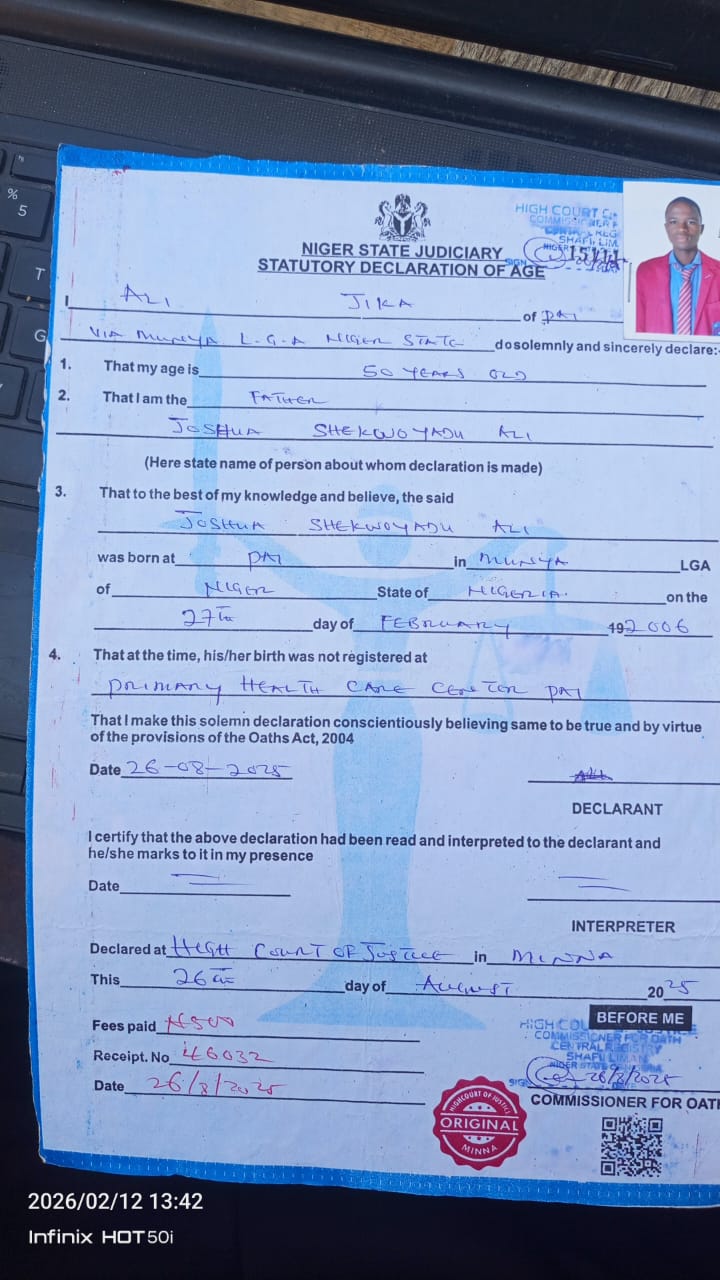 HIGH COURT
COMMISSIONER F
SHAFI LIM
NIGER STATE JUDICIARY
STATUTORY DECLARATION OF AGE
SIGN
I ALI JIKA of PAI
VIA MUNYA L.G.A NIGER STATE do solemnly and sincerely declare:-
1. That my age is 50 YEARS OLD
2. That I am the FATHER
JOSHUA SHEKWOYADU ALI
(Here state name of person about whom declaration is made)
3. That to the best of my knowledge and believe, the said
JOSHUA SHEKWOYADU ALI
was born at PAI in MUNYA LGA
of NIGER State of NIGERIA. on the
27th day of FEBRUARY 192006
4. That at the time, his/her birth was not registered at
PRIMARY HEALTH CARE CENTER PAI
That I make this solemn declaration conscientiously believing same to be true and by virtue
of the provisions of the Oaths Act, 2004
Date 26-08-2025
DECLARANT
I certify that the above declaration had been read and interpreted to the declarant and
he/she marks to it in my presence
Date
INTERPRETER
Declared at HIGH COURT OF JUSTICE in MINNA
This 26th day of AUGUST 2025
BEFORE ME
Fees paid ₦500
HIGH COU
COMMISSIONER FOR OATH
CENTRAL REGISTRY
SHAFI LIMAN
NIGER STATE
Receipt. No 46032
SIGN 26/8/2025
Date 26/8/2025
COMMISSIONER FOR OATH
HIGH COURT OF JUSTICE
ORIGINAL
MINNA
2026/02/12 13:42
Infinix HOT 50i
%
5
T
G